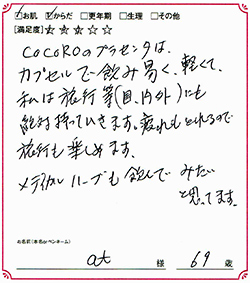 ☑お肌 ☑からだ □更年期 □生理 □その他
[満足度]☆☆☆☆☆
COCOROのプラセンタは、
カプセルで飲み易く、軽くて、
私は旅行等(国内外)にも
絶対持っていきます。疲れもとれるので
旅行も楽しめます。
メディカルハーブも飲んで みたい
と思ってます。
お名前(本名orペンネーム)
at 様 69 歳